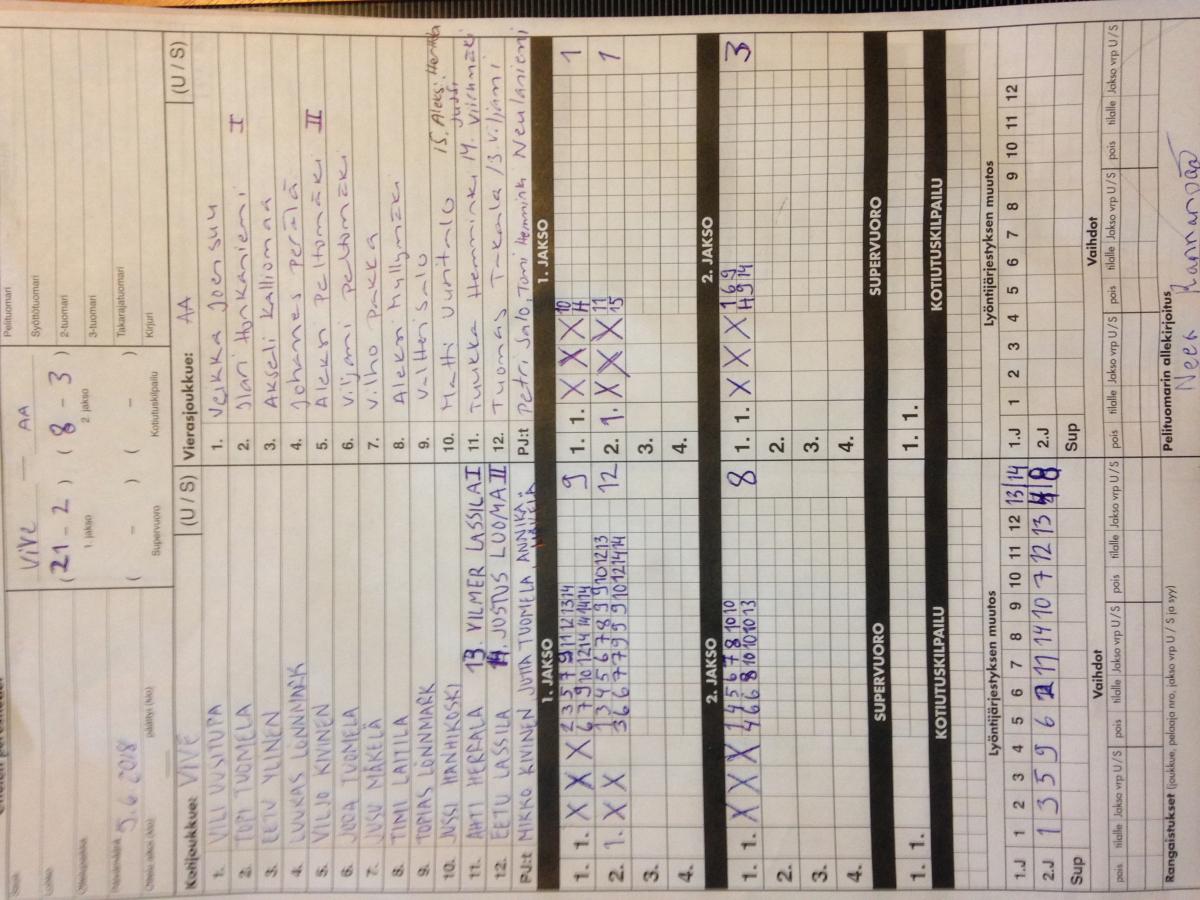 Pelituomari
Syöttötuomari
2-tuomari
3-tuomari
Takarajatuomari
Kirjuri
ViVe — AA
(21 - 2) (8 - 3)
1. jakso 2. jakso
( - ) ( - )
Supervuoro Kotiutuskilpailu
Päivämäärä 9.6.2018
Ottelu alkoi (klo) päättyi (klo)
Kotijoukkue: VIVE (U / S)
1. VILI UUSITUPA
2. TOPI TUOMELA
3. EETU YLINEN
4. LUUKAS LÖNNMARK
5. VILJO KIVINEN
6. JOOA TUOMELA
7. JUSU MÄKELÄ
8. TIMIL LAITILA
9. TOPIAS LÖNNMARK
10. JUSSI HANHIKOSKI
11. AHTI HERRALA 13. VILMER LASSILA I
12. EETU LASSILA 14. JUSTUS LUOMA II
PJ:t MIKKO KIVINEN JUTTA TUOMELA ANNIKA
Vierasjoukkue: AA (U / S)
1. Veikka Joensuu
2. Ilari Honkaniemi I
3. Akseli Kalliomaa
4. Johannes Perälä
5. Aleksi Peltomäki II
6. Viljami Peltomäki
7. Vilho Pakka
8. Aleksi Myllymäki
9. Valtteri Salo
10. Matti Uusitalo 15. Aleksi Herttua
11. Tuukka Hemminki 14. Jussi Viertomäki
12. Tuomas Takala 13. Viljami
PJ:t Petri Salo, Toni Hemminki Neulaniemi
1. JAKSO
1. 1. X X X 2 3 5 7 9 11 12 13 14 9
6 7 9 10 12 14 14 14 14
2. 1. X X 1 3 4 5 6 7 8 9 9 10 12 13 12
3 6 6 7 7 9 9 9 10 12 14 14
3.
4.
1. JAKSO
1. 1. X X X 10 1
11
2. 1. X X X 11 1
15
3.
4.
2. JAKSO
1. 1. X X X 1 4 5 6 7 8 10 10 8
4 6 6 8 10 10 10 13
2.
3.
4.
2. JAKSO
1. 1. X X X 1 6 9 3
4 9 14
2.
3.
4.
SUPERVUORO
1. 1.
SUPERVUORO
1. 1.
KOTIUTUSKILPAILU
KOTIUTUSKILPAILU
Lyöntijärjestyksen muutos
1.J 1 2 3 4 5 6 7 8 9 10 11 12 13 14
2.J 1 3 5 9 6 2 11 14 10 7 12 13 4 8
Sup
Lyöntijärjestyksen muutos
1.J 1 2 3 4 5 6 7 8 9 10 11 12
2.J
Sup
Vaihdot
pois tilalle Jakso vrp U / S pois tilalle Jakso vrp U / S pois tilalle Jakso vrp U / S
Vaihdot
pois tilalle Jakso vrp U / S pois tilalle Jakso vrp U / S pois tilalle Jakso vrp U / S
Rangaistukset (joukkue, pelaaja nro, jakso vrp U / S ja syy)
Pelituomarin allekirjoitus